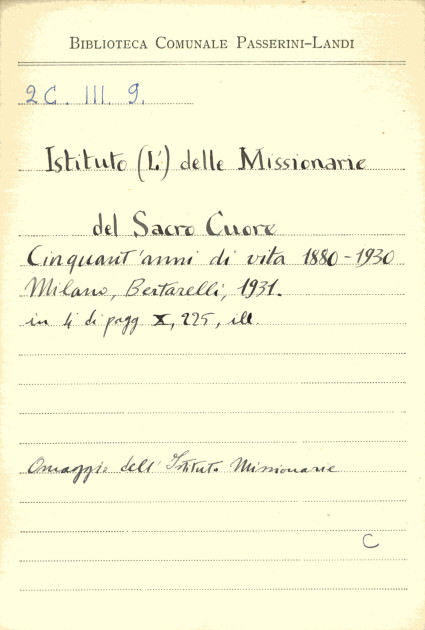 BIBLIOTECA COMUNALE PASSERINI-LANDI
2C. III. 9.
Istituto (L') delle Missionarie
del Sacro Cuore
Cinquant'anni di vita 1880-1930
Milano, Bertarelli, 1931.
in 4° di pagg X, 225, ill.
Omaggio dell'Istituto Missionarie
C